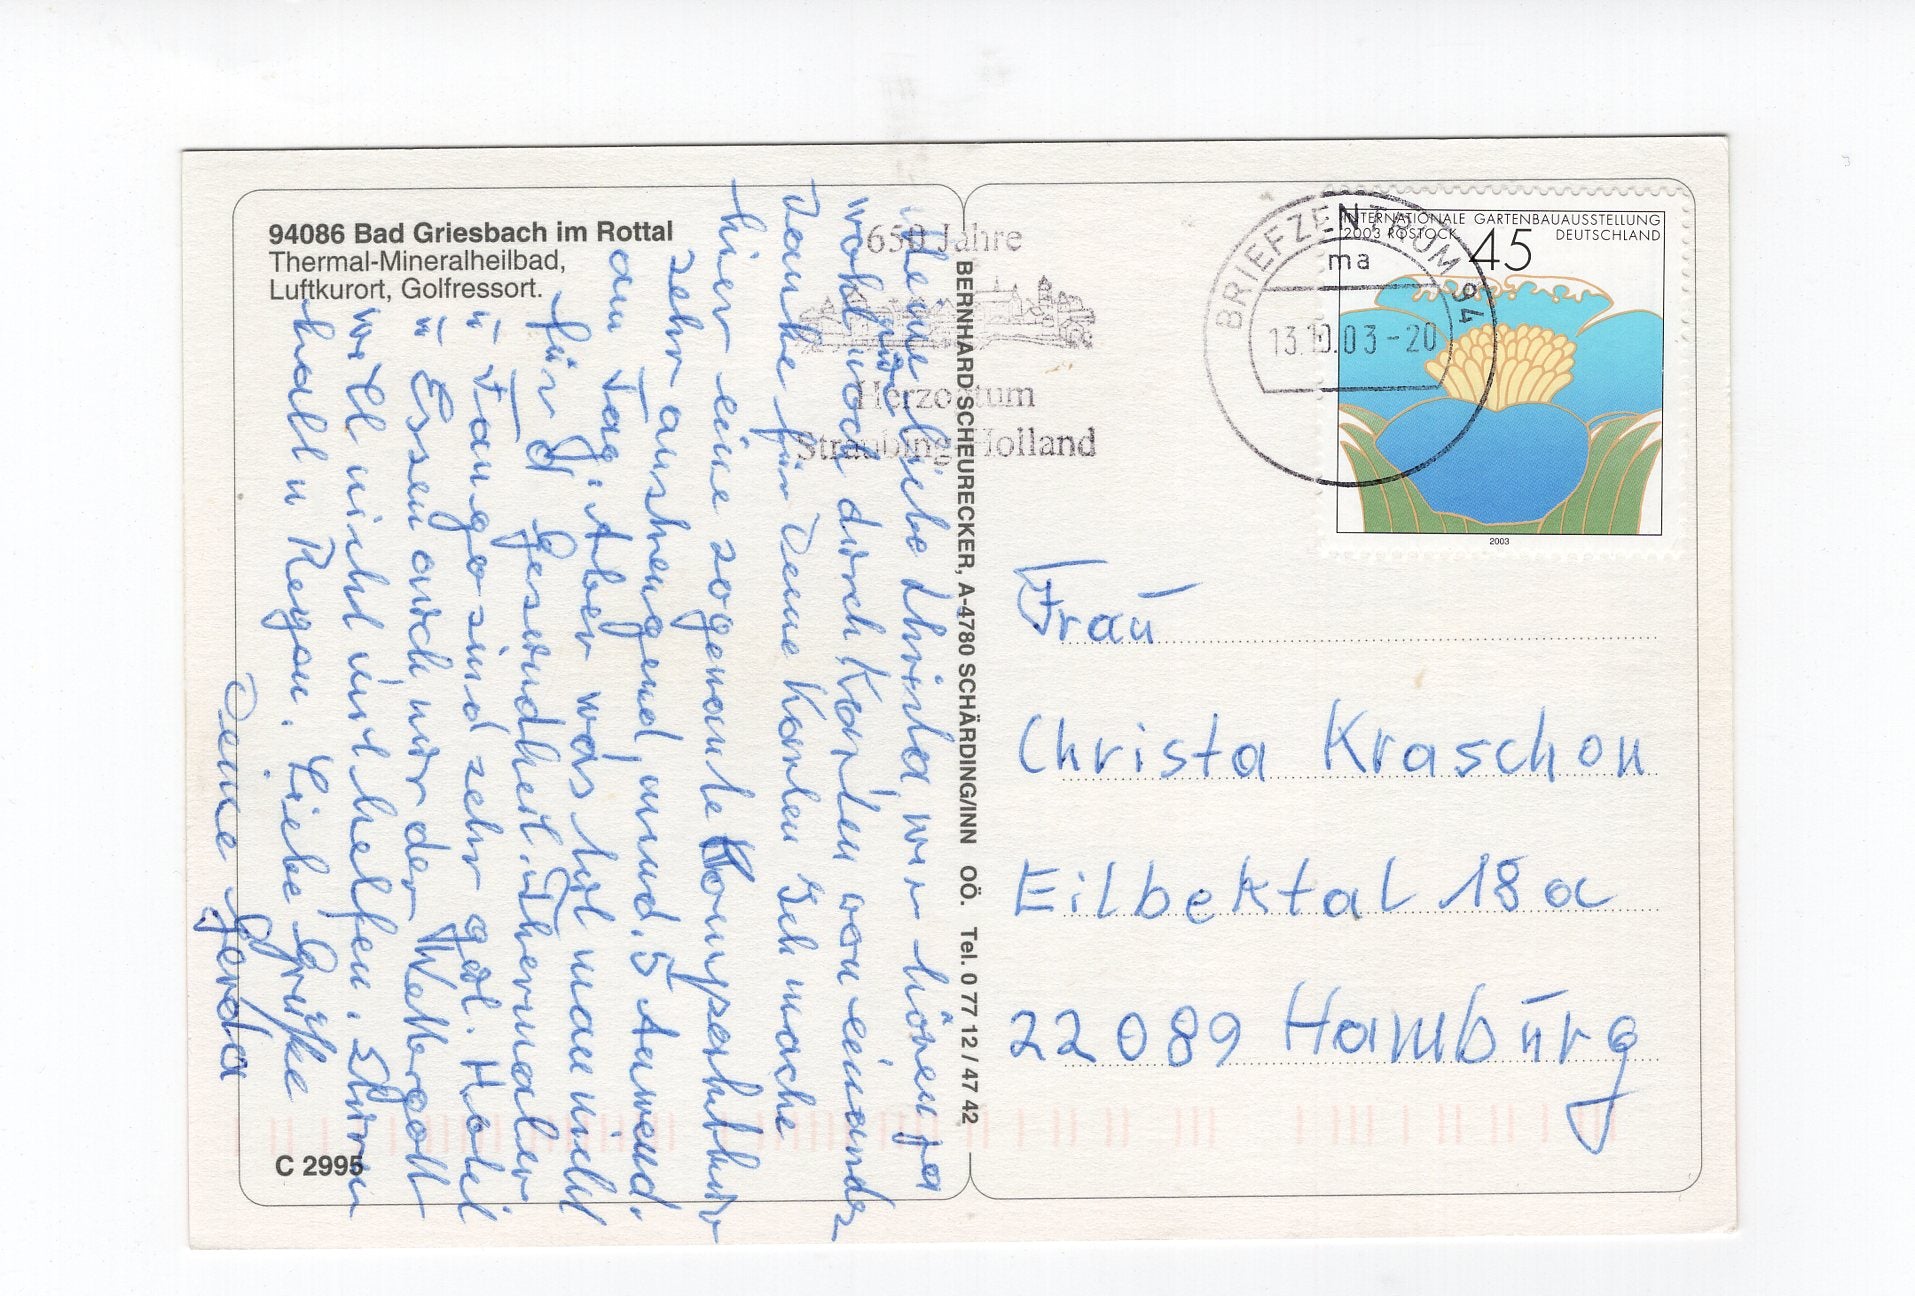 94086 Bad Griesbach im Rottal
Thermal-Mineralheilbad,
Luftkurort, Golfressort.
Meine liebe Christa, wir hören ja
wohl nur noch durch Karten von einander
Danke für Deine Karten Ich mache
hier eine sogenante Kompserkur
sehr anstrengend, mind. 5 Anwend.
am Tag. Aber was tut man nicht
für d Gesundheit. Thermalbr
u Fango sind sehr gut. Hotel
u Essen auch nur der Wettergott
will nicht mithelfen. Sturm
kalt u Regen. Liebe Grüße
Deine Gerda
C 2995
BERNHARD SCHEURECKER, A-4780 SCHÄRDING/INN OÖ. Tel. 0 77 12 / 47 42
650 Jahre
Herzogtum
Straubing Holland
BRIEFZENTRUM 94
ma
13.10.03-20
INTERNATIONALE GARTENBAUAUSSTELLUNG
2003 ROSTOCK
DEUTSCHLAND
45
2003
Frau
Christa Kraschon
Eilbektal 18 a
22089 Hamburg